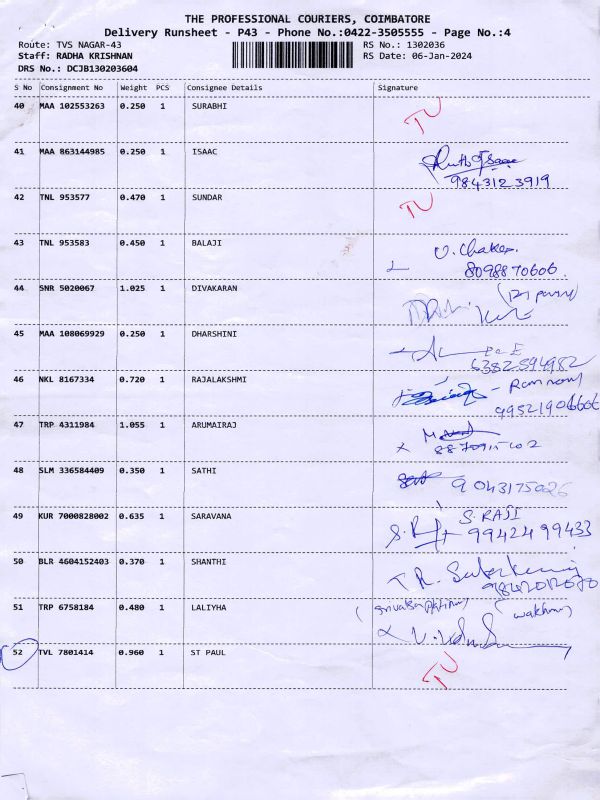 THE PROFESSIONAL COURIERS, COIMBATORE
Delivery Runsheet - P43 - Phone No.:0422-3505555 - Page No.:4
Route: TVS NAGAR-43 RS No.: 1302036
Staff: RADHA KRISHNAN RS Date: 06-Jan-2024
DRS No.: DCJB130203604
S No Consignment No Weight PCS Consignee Details Signature
40 MAA 102553263 0.250 1 SURABHI TU
41 MAA 863144985 0.250 1 ISAAC
9843123919
42 TNL 953577 0.470 1 SUNDAR TU
43 TNL 953583 0.450 1 BALAJI
8098870606
44 SNR 5020067 1.025 1 DIVAKARAN
45 MAA 108069929 0.250 1 DHARSHINI
6382594982
46 NKL 8167334 0.720 1 RAJALAKSHMI
47 TRP 4311984 1.055 1 ARUMAIRAJ
48 SLM 336584409 0.350 1 SATHI
49 KUR 7000828002 0.635 1 SARAVANA S. RAJI
9942499433
50 BLR 4604152403 0.370 1 SHANTHI
51 TRP 6758184 0.480 1 LALIYHA
52 TVL 7801414 0.960 1 ST PAUL TU